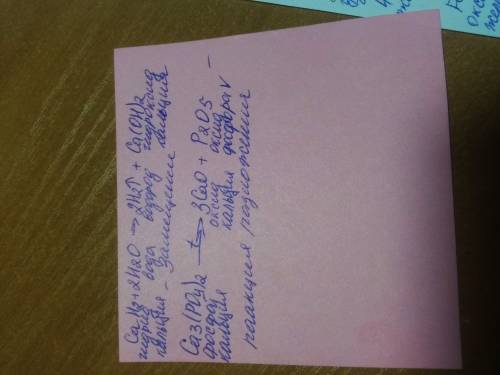 CaH2 + 2H2O → 2H2↑ + Ca(OH)2
гидрид вода водород гидроксид
кальция - замещения кальция
Ca3(PO4)2 t→ 3CaO + P2O5
фосфат оксид оксид
кальция кальция фосфора V –
реакция разложения